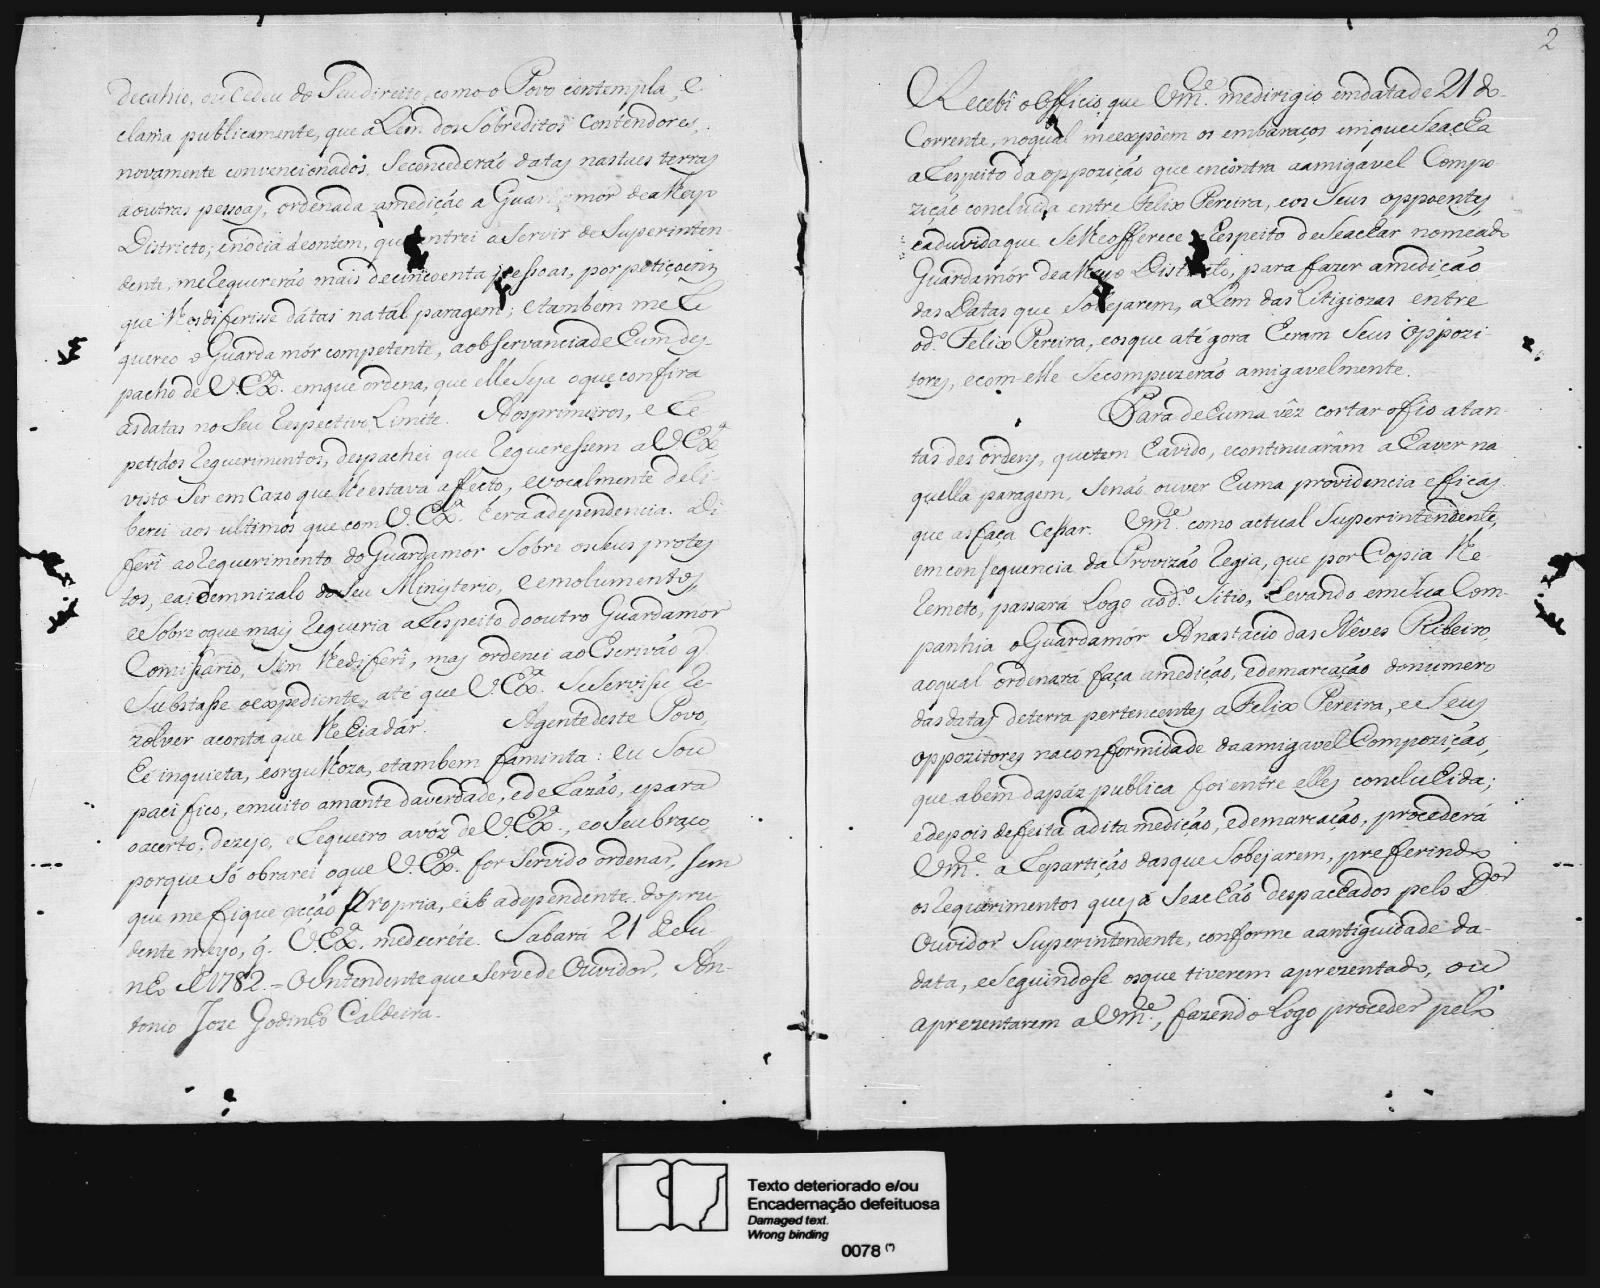 decahio, ou cedeu do Seu direito, como o Povo contempla, e
clama publicamente, que alem dos Sobreditos Contendores,
novamente convencionados, Se concederáõ datas nas taes terras
a outras pessoas, ordenada a medição a Guardamór deaquelle
Districto; e no dia de ontem, que entrei a Servir de Superinten-
dente, me requererão mais de cincoenta pessoas, por petiçoens
que lhes diferisse datas na tál paragem; e tambem me re
quereo o Guarda mór competente, a observancia de hum des-
pacho de V. Exª. em que ordena, que elle Seja o que confira
as datas no Seu respectivo Limite. Aos primeiros, e re
petidos requerimentos, despachei que requeressem a V. Exª,
visto Ser em Cazo que lhe estava affecto, e vocalmente deli-
berei aos ultimos que com V. Exª. hera a dependencia. di
ferî ao requerimento do Guardamor Sobre os Seus protes
tos, e a idemnizalo do Seu Ministerio, e emolumentos,
e Sobre o que mais requeria a respeito do outro Guardamor
Comissario, Sim lhe diferî, mas ordenei ao Escrivão q̃
Substasse o expediente, até que V. Exª. Se Servisse re-
zolver a conta que lhe hia dár. A gente deste Povo,
hé inquieta, e orgulhoza, e tambem faminta: eu Sou
pacifico, e muito amante da verdade, e de razão, e para
o acerto, dezejo, e requeiro a vóz de V. Exª., e o Seu braço
porque Só obrarei o que V. Exª. for Servido ordenar, Sem
que me fique acção propria, e Só a dependente do pru
dente meyo, q̃. V. Exª. me decréte. Sabará 21 de Ju
nho de 1782. = O Intendente que Serve de Ouvidor, An-
tonio Joze Godinho Caldeira.
2
Recebî o Officio que Vm.ᵉ me dirigio em data de 21 do
Corrente, no qual me expõem os embaraços em que Se acha
a respeito da oppozição que encontra a amigavel Compo
zição concluida entre Felix Pereira, e os Seus oppoentes,
e a duvida que Se lhe offerece a respeito de Se achar nomeado
Guardamór deaquelle Districto, para fazer a medição
das Datas que Sobejarem, alem das litigiozas entre
o d.º Felix Pereira, e os que até gora heram Seus oppozi
tores, e com elle Se compuzerão amigavelmente.
Para de huma vêz cortar o fio a tan-
tas desordens, que tem havido, e continuarám a haver na
quella paragem, Se não ouver huma providencia efficás
que as faça Cessar. Vm.ᵉ como actual Superintendente,
em consequencia da Provizão regia, que por Copia lhe
remeto, passará logo ao d.º Sitio, levando em Sua Com-
panhia o Guardamór Anastacio das Nêves Ribeiro,
ao qual ordenará faça a medição, e demarcação do numero
das datas de terra pertencentes a Felix Pereira, e e Seus
oppozitores na conformidade da amigavel Compozição,
que a bem da páz publica foi entre elles concluhida;
e depois de feita a dita medição, e demarcação, procederá
Vm.ᵉ a repartição das que Sobejarem, preferindo
os requerimentos que já Se achão despachados pelo D.ᵒʳ
Ouvidor Superintendente, conforme a antiguidade da-
data, e Seguindose os que tiverem aprezentado, ou
aprezentarem a Vm.ᵉ, fazendo logo proceder pelo
Texto deteriorado e/ou
Encadernação defeituosa
Damaged text.
Wrong binding
0078 (*)